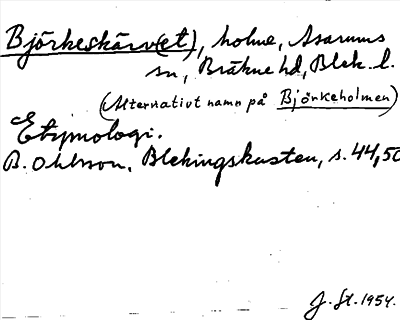 Björkeskärv(et), holme, Asarums
sn, Bräkne hd, Blek. l.
(Alternativt namn på Björkeholmen)
Etymologi.
B. Ohlsson, Blekingskusten, s. 44, 50
J. St. 1954.